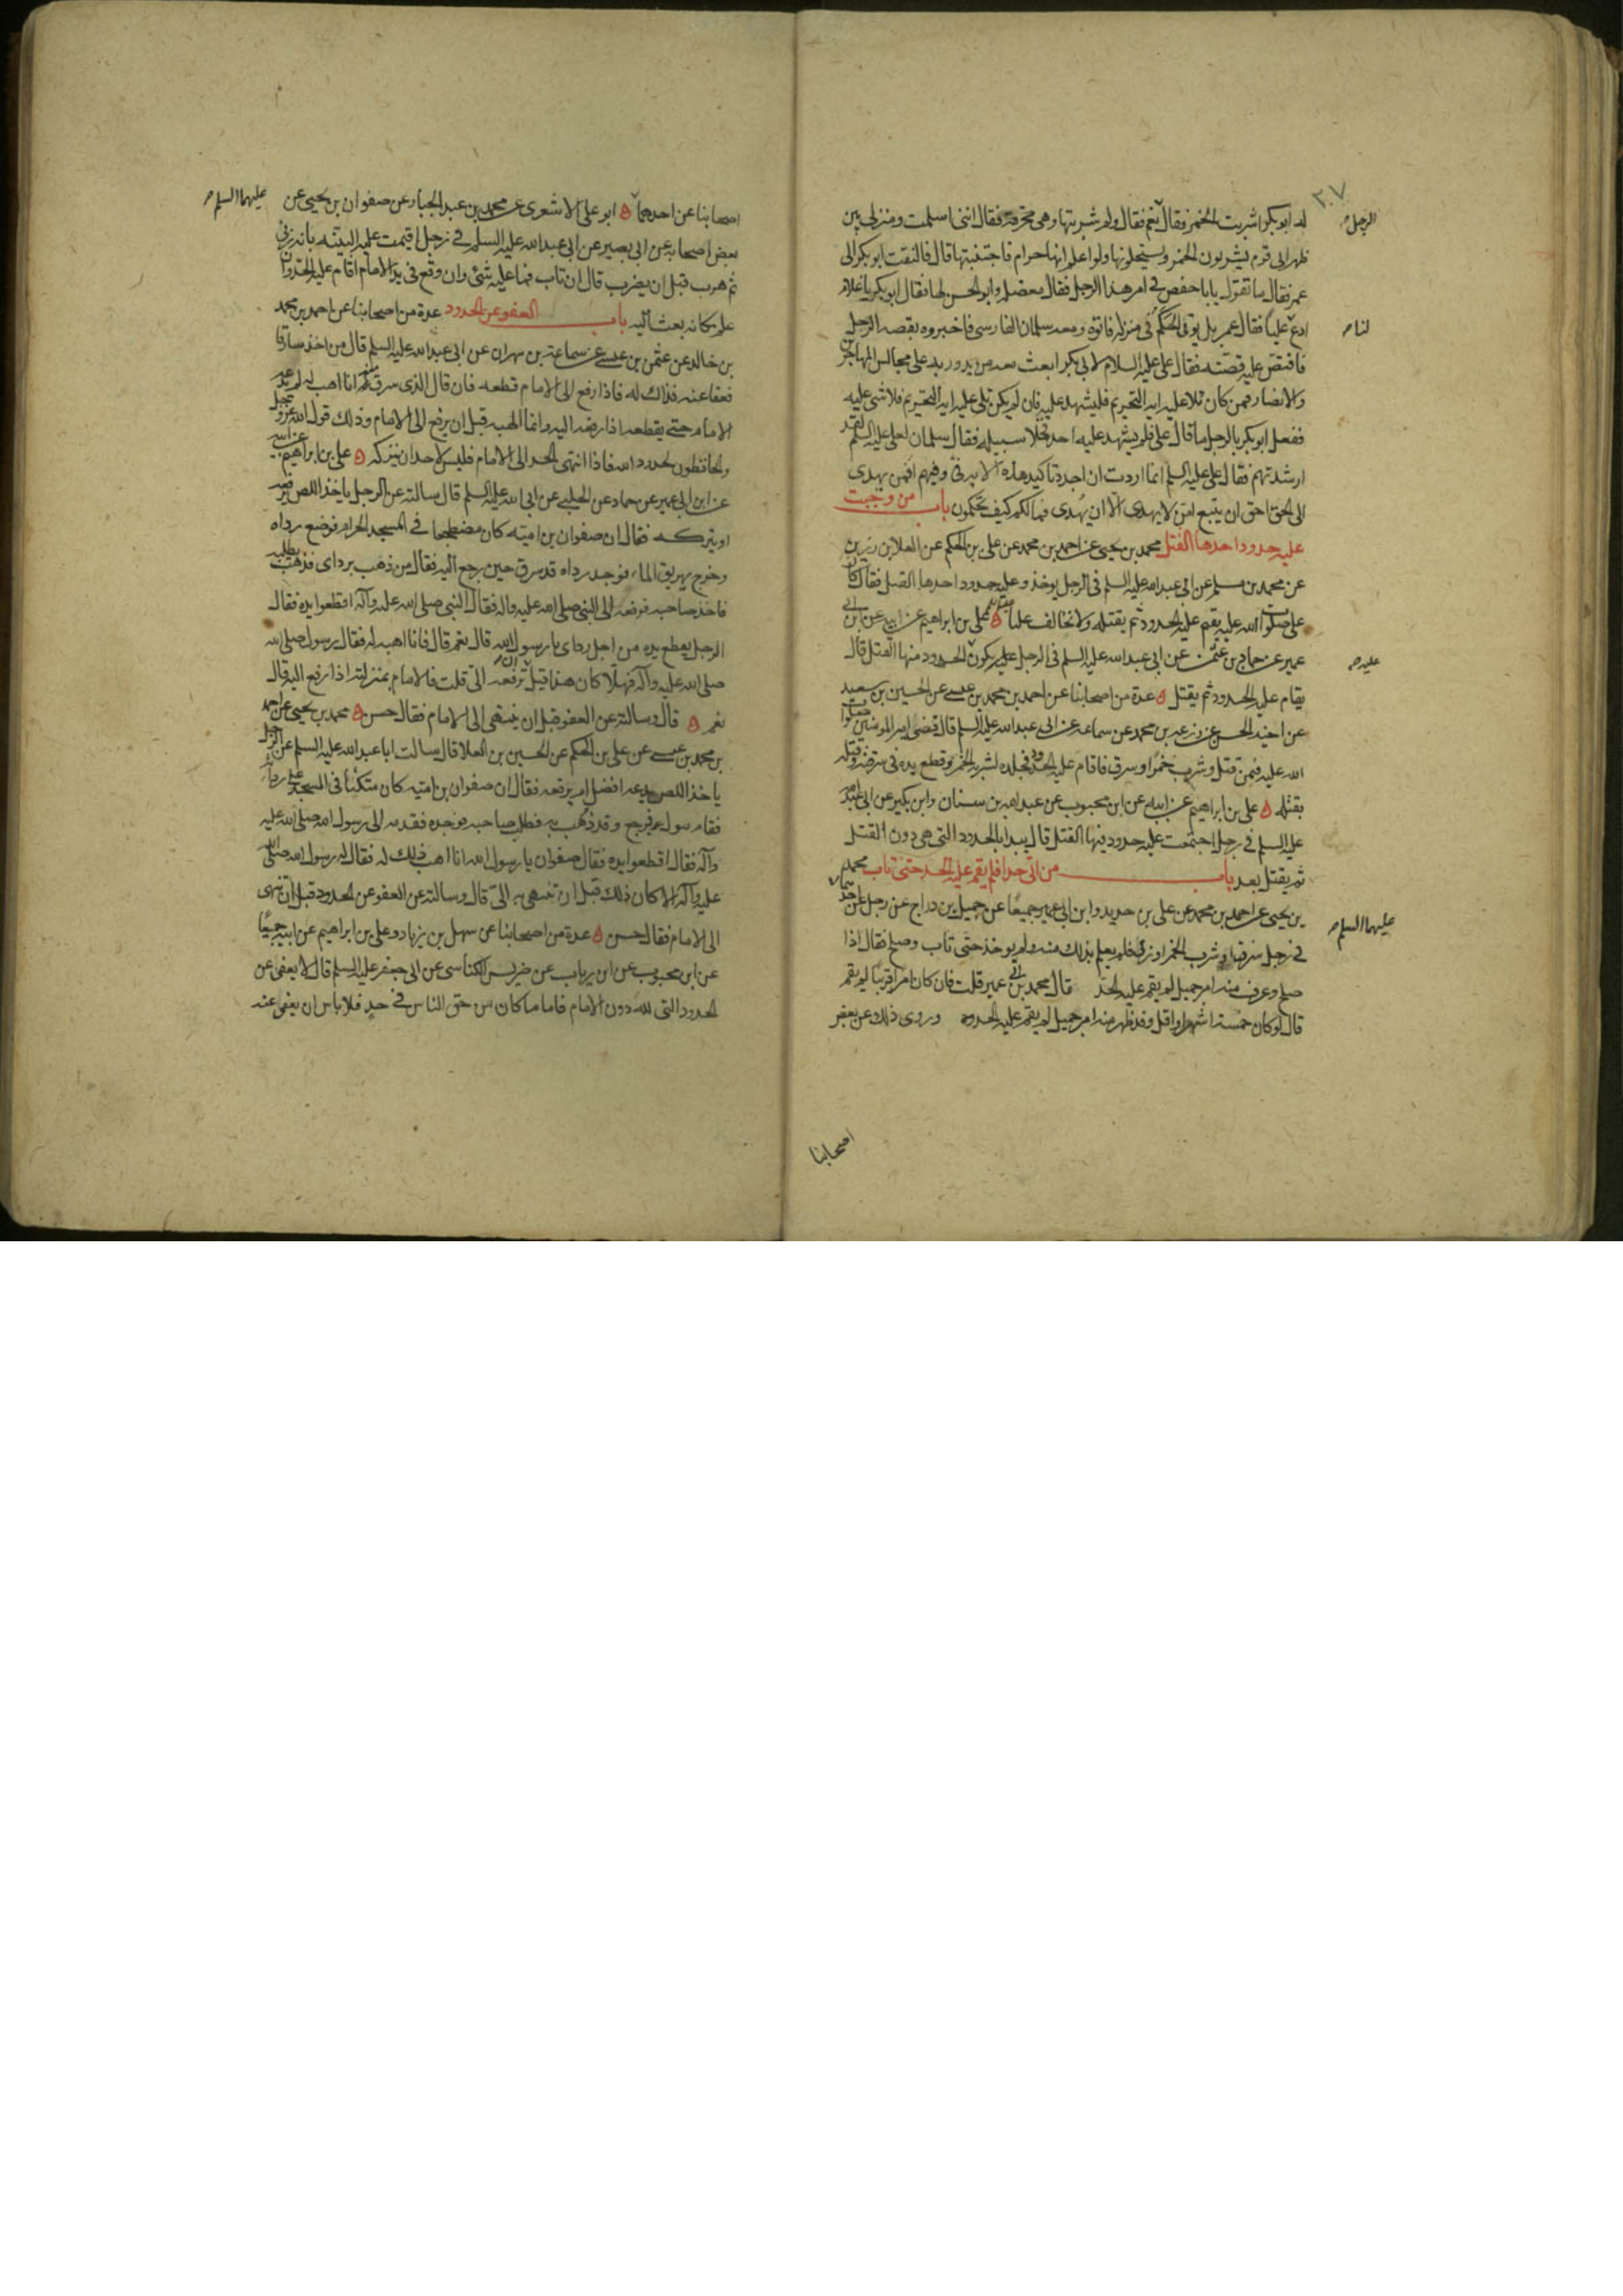 ٢٠٧
له ابو بكر اشربت الخمر فقال نعم فقال ولم شربتها وهي محرمة فقال انني اسلمت ومنزلي بين
الرجل
ظهراني قوم يشربون الخمر ويستحلونها ولو اعلم انها حرام فاجتنبتها قال فالتفت ابو بكر الى
عمر فقال ما تقول يابا حفص في امر هذا الرجل فقال معضلة وابو الحسن لها فقال ابو بكر يا غلام
ادع عليا فقال عمر بل يوتى الحكم في منزله فاتوه ومعه سلمان الفارسي فاخبروه بقصة الرجل
لنا
فاقتص عليه قصته فقال علي عليه السلام لابي بكر ابعث معه من يدور به على مجالس المهاجرين
والانصار فمن كان تلا عليه اية التحريم فليشهد عليه فان لم يكن تلى عليه اية التحريم فلا شي عليه
ففعل ابو بكر بالرجل ما قال علي فلم يشهد عليه احد فخلا سبيله فقال سلمان لعلي عليه السلم لقد
ارشدتهم فقال علي عليه السلم انما اردت ان اجدد تاكيد هذه الاية في وفيهم افمن يهدى
الى الحق احق ان يتبع امن لا يهدى الا ان يهدى فما لكم كيف تحكمون باب من وجبت
عليه حدود احدها القتل محمد بن يحيى عن احمد بن محمد عن علي بن الحكم عن العلا بن رزين
عن محمد بن مسلم عن ابي عبد الله عليه السلم في الرجل يوخذ وعليه حدود احدها القتل فقال كان
علي صلوات الله عليه يقيم عليه الحدود ثم يقتله ولا نخالف عليا علي بن ابراهيم عن ابيه عن ابن ابي
عمير عن حماد بن عثمن عن ابي عبد الله عليه السلم في الرجل عليه يكون الحدود منها القتل قال
عليه
يقام عليه الحدود ثم يقتل عدة من اصحابنا عن احمد بن محمد بن عيسى عن الحسين بن سعيد
عن اخيه الحسن عن زرعة بن محمد عن سماعة عن ابي عبد الله عليه السلم قال قضى امير المومنين صلوات
الله عليه فيمن قتل وشرب خمرا وسرق فاقام عليه الحد فجلده لشربه الخمر وقطع يده في سرقته وقتله
بقتله علي بن ابراهيم عن ابيه عن ابن محبوب عن عبد الله بن سنان وابن بكير عن ابي عبد الله
عليه السلم في رجل اجتمعت عليه حدود فيها القتل قال يبدا بالحدود التي هي دون القتل
ثم يقتل بعد باب من اتى حدا فلم يقم عليه الحد حتى تاب محمد
بن يحيى عن احمد بن محمد عن علي بن حديد وابن ابي عمير جميعا عن جميل بن دراج عن رجل عن احدهما
عليهما السلم
في رجل سرق او شرب الخمر او زنى فلم يعلم بذلك منه ولم يوخذ حتى تاب وصلح فقال اذا
صلح وعرف منه امر جميل لم يقم عليه الحد قال محمد بن ابي عمير قلت فان كان امرا قريبا لم يقم
قال لو كان خمسة اشهر او اقل وقد ظهر منه امر جميل لم يقم عليه الحدود وروى ذلك عن بعض
اصحابنا
اصحابنا عن احدهما ابو علي الاشعري عن محمد بن عبد الجبار عن صفوان بن يحيى عن
عليهما السلم
بعض اصحابه عن ابي بصير عن ابي عبد الله عليه السلم في رجل اقيمت عليه البينة بانه زنى
ثم هرب قبل ان يضرب قال ان تاب فما عليه شئ وان وقع في يد الامام اقام عليه الحد وان
علم مكانه بعث اليه باب العفو عن الحدود عدة من اصحابنا عن احمد بن محمد
بن خالد عن عثمن بن عيسى عن سماعة بن مهران عن ابي عبد الله عليه السلم قال من اخذ سارقا
فعفا عنه فذاك له فاذا رفع الى الامام قطعه فان قال الذي سرق منه انا اهب له لم يدعه
الامام حتى يقطعه اذا رفعه اليه وانما الهبة قبل ان يرفع الى الامام وذلك قول الله عز وجل
والحافظون لحدود الله فاذا انتهى الحد الى الامام فليس لاحد ان يتركه علي بن ابراهيم عن ابيه
عن ابن ابي عمير عن حماد عن الحلبي عن ابي الله عليه السلم قال سالته عن الرجل ياخذ اللص يرفعه
او يتركه فقال ان صفوان بن امية كان مضطجعا في المسجد الحرام فوضع رداه
وخرج يهريق الماء فوجد رداه قد سرق حين رجع اليه فقال من ذهب برداي فذهب يطلبه
فاخذ صاحبه فرفعه الى النبي صلى الله عليه واله فقال النبي صلى الله عليه وآله اقطعوا يده فقال
الرجل يقطع يده من اجل رداي يا رسول الله قال نعم قال فانا اهبه له فقال رسول صلى الله
صلى الله عليه وآله فهلا كان هذا قبل ان ترفعه الي قلت فالامام بمنزلته اذا رفع اليه قال
نعم قال وسالته عن العفو قبل ان ينتهي الى الامام فقال حسن محمد بن يحيى عن احمد
بن محمد بن عيسى عن علي بن الحكم عن الحسين بن العلا قال سالت ابا عبد الله عليه السلم عن الرجل
ياخذ اللص يدعه افضل ام يرفعه فقال ان صفوان بن امية كان متكئا في المسجد على ردائه
فقام يبول فرجع وقد ذهب به فطلب صاحبه فوجده فقدمه الى رسول الله صلى الله عليه
وآله فقال اقطعوا يده فقال صفوان يا رسول الله انا اهب ذلك له فقال له رسول الله صلى الله
عليه وآله الا كان ذلك قبل ان تنتهي به الي قال وسالته عن العفو عن الحدود قبل ان ينتهى
الى الامام فقال حسن عدة من اصحابنا عن سهل بن زياد وعلي بن ابراهيم عن ابيه جميعا
عن ابن محبوب عن ابن رياب عن ضريس الكناسي عن ابي جعفر عليه السلم قال لا يعفى عن
الحدود التي لله دون الامام فاما ما كان من حق الناس في حد فلا باس ان يعفى عنه